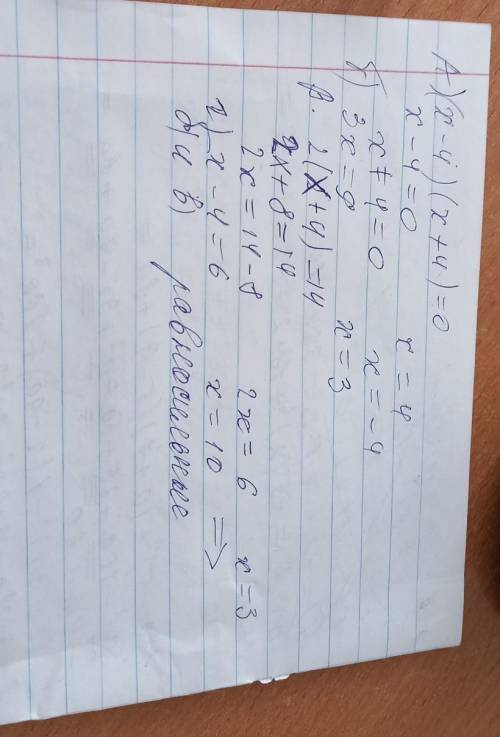 А) (x-4)(x+4)=0
x-4=0 x=4
x+4=0 x=-4
б) 3x=9 x=3
в. 2(x+4)=14
2x+8=14
2x=14-8 2x=6 x=3
г) x-4=6 x=10 =>
б) и в) равносильные